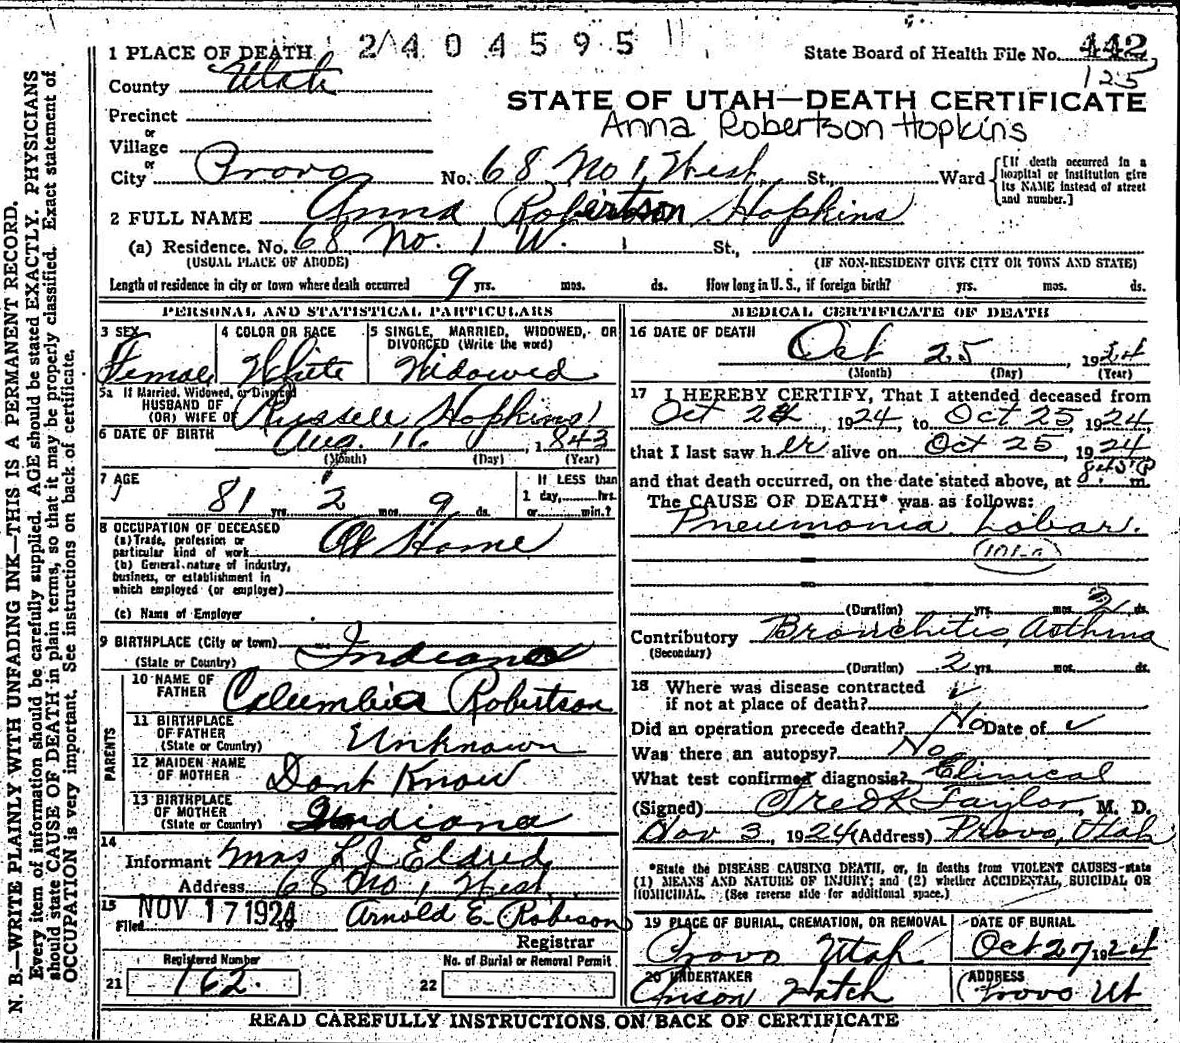 1 PLACE OF DEATH 2404595
State Board of Health File No. 442
125
County Utah
STATE OF UTAH—DEATH CERTIFICATE
Precinct
Anna Robertson Hopkins
or
Village
or
City Provo No. 68 No 1 West St., Ward
[If death occurred in a hospital or institution give its NAME instead of street and number.]
2 FULL NAME Anna Robertson Hopkins
(a) Residence. No. 68 No. 1 W. St,
(USUAL PLACE OF ABODE) (IF NON-RESIDENT GIVE CITY OR TOWN AND STATE)
Length of residence in city or town where death occurred 9 yrs. mos. ds. How long in U. S., if foreign birth? yrs. mos. ds.
PERSONAL AND STATISTICAL PARTICULARS
3 SEX
Female
4 COLOR OR RACE
White
5 SINGLE, MARRIED, WIDOWED, OR
DIVORCED (Write the word)
Widowed
5a If Married, Widowed, or Divorced
HUSBAND OF
(OR) WIFE OF Russell Hopkins
6 DATE OF BIRTH Aug. 16 1843
(Month) (Day) (Year)
7 AGE
81 yrs. 2 mos. 9 ds.
If LESS than
1 day, hrs.
or min.?
8 OCCUPATION OF DECEASED
(a) Trade, profession or
particular kind of work At Home
(b) General nature of industry,
business, or establishment in
which employed (or employer)
(c) Name of Employer
9 BIRTHPLACE (City or town)
(State or Country) Indiana
PARENTS
10 NAME OF
FATHER Columbia Robertson
11 BIRTHPLACE
OF FATHER
(State or Country) Unknown
12 MAIDEN NAME
OF MOTHER Dont Know
13 BIRTHPLACE
OF MOTHER
(State or Country) Indiana
14
Informant Mrs L J Eldred
Address 68 No 1 West
15
Filed NOV 17 1924 19 Arnold E. Robison
Registrar
Registered Number
21 162.
No. of Burial or Removal Permit
22
MEDICAL CERTIFICATE OF DEATH
16 DATE OF DEATH
Oct 25 1924
(Month) (Day) (Year)
17 I HEREBY CERTIFY, That I attended deceased from
Oct 24, 1924, to Oct 25, 1924,
that I last saw her alive on Oct 25, 1924
and that death occurred, on the date stated above, at m.
The CAUSE OF DEATH* was as follows:
Pneumonia Lobar.
(101-a)
(Duration) yrs. mos. 2 ds.
Contributory Bronchitis, Asthma
(Secondary)
(Duration) 2 yrs. mos. ds.
18 Where was disease contracted
if not at place of death?
Did an operation precede death? No Date of
Was there an autopsy? No
What test confirmed diagnosis? Clinical
(Signed) Fred R Taylor, M. D.
Nov 3, 1924 (Address) Provo, Utah
*State the DISEASE CAUSING DEATH, or, in deaths from VIOLENT CAUSES-state
(1) MEANS AND NATURE OF INJURY; and (2) whether ACCIDENTAL, SUICIDAL OR
HOMICIDAL. (See reverse side for additional space.)
19 PLACE OF BURIAL, CREMATION, OR REMOVAL
Provo Utah
DATE OF BURIAL
Oct 27 1924
20 UNDERTAKER
Anson Hatch
ADDRESS
Provo Ut
READ CAREFULLY INSTRUCTIONS ON BACK OF CERTIFICATE
N. B.—WRITE PLAINLY WITH UNFADING INK—THIS IS A PERMANENT RECORD.
Every item of information should be carefully supplied. AGE should be stated EXACTLY. PHYSICIANS
should state CAUSE OF DEATH in plain terms, so that it may be properly classified. Exact statement of
OCCUPATION is very important. See instructions on back of certificate.